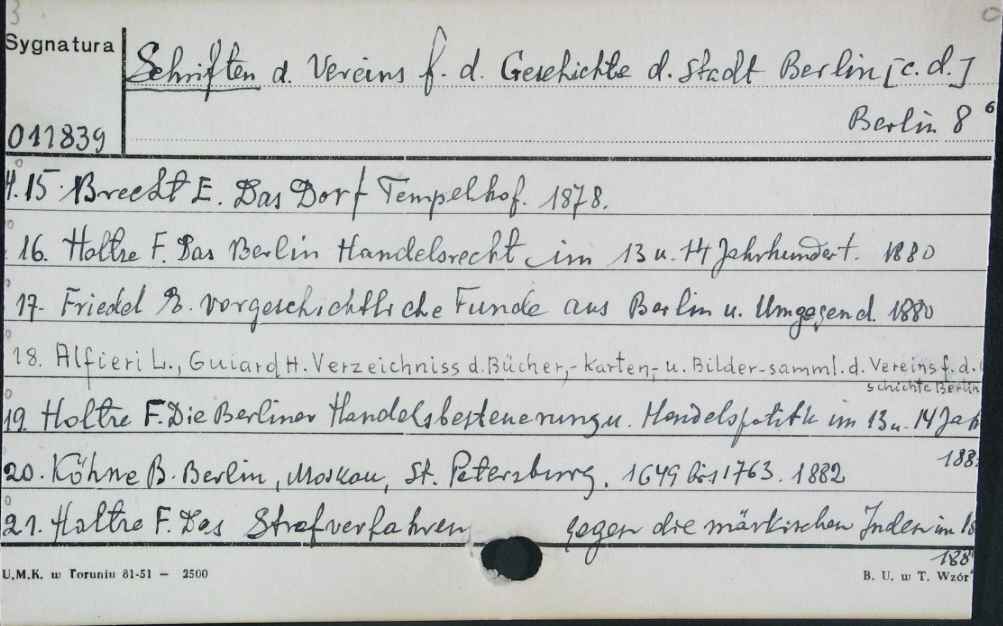 3
Sygnatura
Schriften d. Vereins f. d. Geschichte d. Stadt Berlin [c. d.]
Berlin 8⁶
011839
H. 15. Brecht E. Das Dorf Tempelhof. 1878.
16. Holtze F. Das Berlin Handelsrecht im 13 u. 14 Jahrhundert. 1880
17. Friedel E. Vorgeschichtliche Funde aus Berlin u. Umgegend. 1880
18. Alfieri L., Guiard H. Verzeichniss d. Bücher,- Karten,- u. Bilder-samml. d. Vereins f. d.
schichte Berlin
19. Holtze F. Die Berliner Handelsbesteuerung u. Handelspolitik im 13 u. 14 Jah
188
20. Köhne B. Berlin, Moskau, St. Petersburg. 1649 bis 1763. 1882
21. Holtze F. Das Strafverfahren gegen die märkischen Juden im
188
U.M.K. w Toruniu 81-51 — 2500
B. U. w T. Wzór